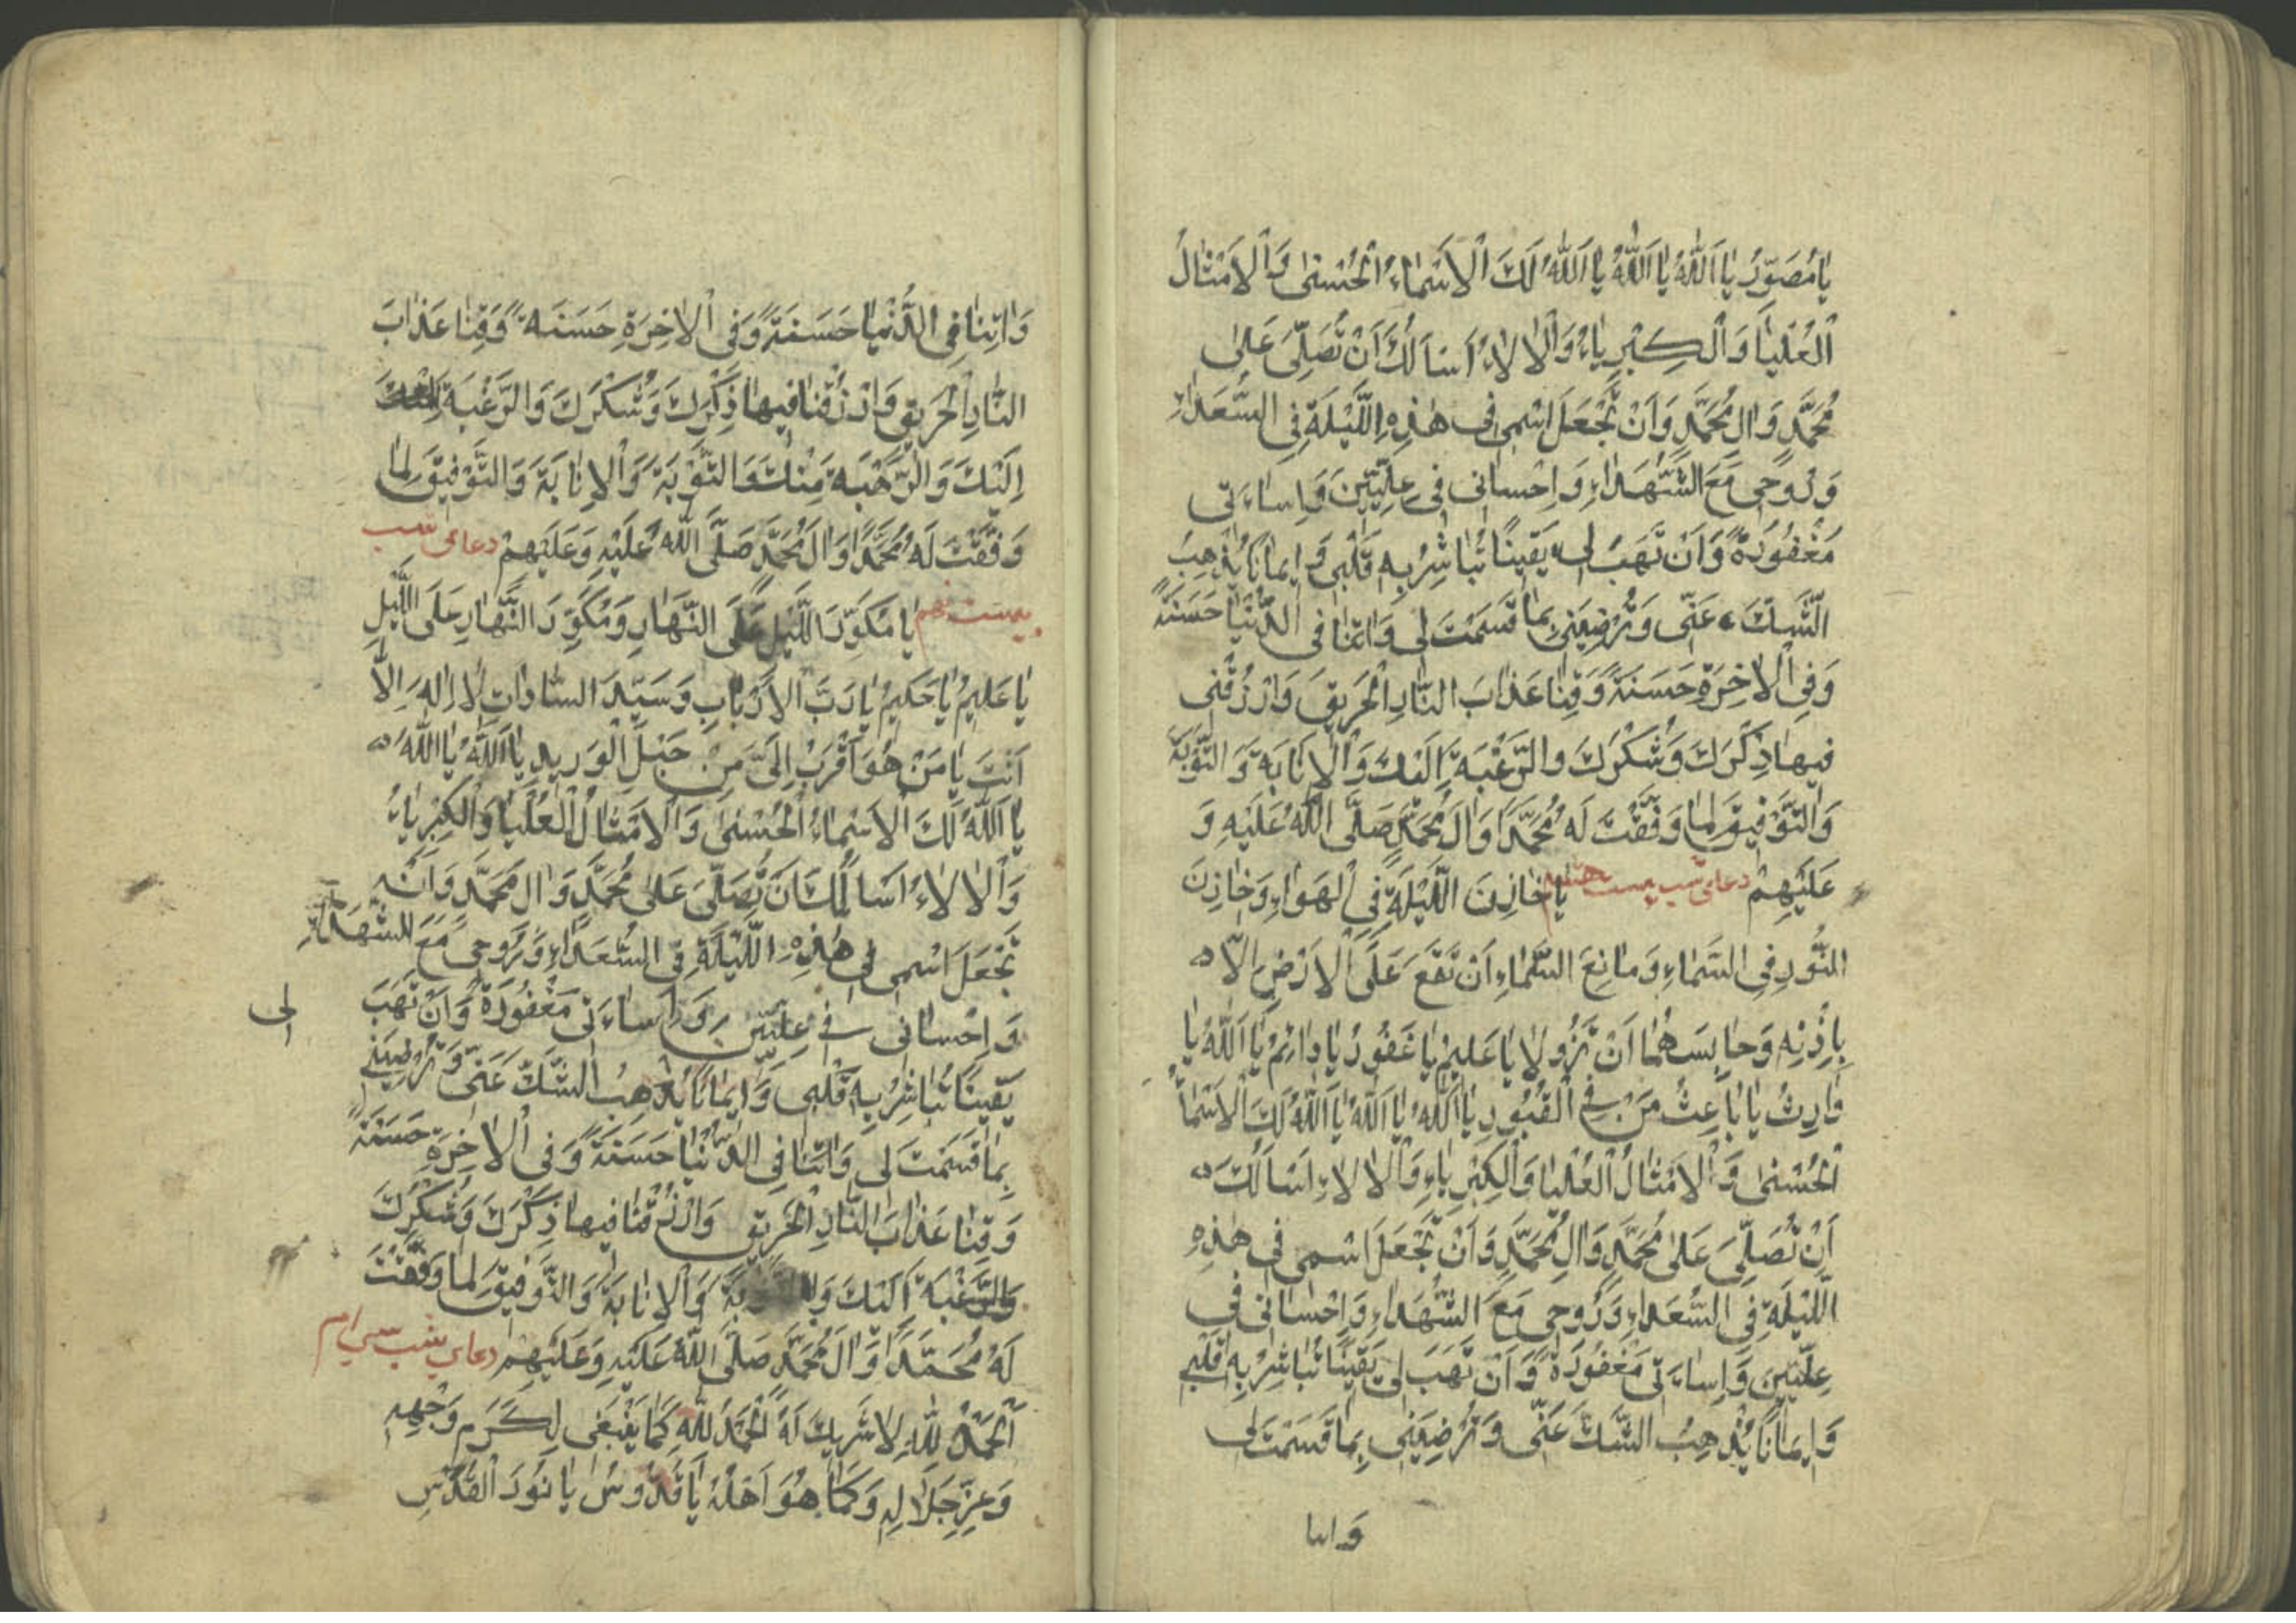 يَا مُصَوِّرُ يَا اَللّٰهُ يَا اَللّٰهُ يَا اَللّٰهُ لَكَ الْاَسْمَاءُ الْحُسْنىٰ وَالْاَمْثَالُ
الْعُلْيَا وَالْكِبْرِيَاءُ وَالْاٰلَاءُ اَسْاَلُكَ اَنْ تُصَلِّىَ عَلىٰ
مُحَمَّدٍ وَاٰلِ مُحَمَّدٍ وَاَنْ تَجْعَلَ اسْمِى فِى هٰذِهِ اللَّيْلَةِ فِى السُّعَدَاءِ
وَرُوحِى مَعَ الشُّهَدَاءِ وَاِحْسَانِى فِى عِلِّيِّينَ وَاِسَاءَتِى
مَغْفُورَةً وَاَنْ تَهَبَ لِى يَقِينًا تُبَاشِرُ بِهِ قَلْبِى وَاِيمَانًا يُذْهِبُ
الشَّكَّ عَنِّى وَتُرْضِيَنِى بِمَا قَسَمْتَ لِى وَاٰتِنَا فِى الدُّنْيَا حَسَنَةً
وَفِى الْاٰخِرَةِ حَسَنَةً وَقِنَا عَذَابَ النَّارِ الْحَرِيقِ وَارْزُقْنِى
فِيهَا ذِكْرَكَ وَشُكْرَكَ وَالرَّغْبَةَ اِلَيْكَ وَالْاِنَابَةَ وَالتَّوْبَةَ
وَالتَّوْفِيقَ لِمَا وَفَّقْتَ لَهُ مُحَمَّدًا وَاٰلَ مُحَمَّدٍ صَلَّى اللّٰهُ عَلَيْهِ وَ
عَلَيْهِمْ دعاى شب بيست هشتم يَا خَازِنَ اللَّيْلَةِ فِى الْهَوَاءِ وَخَازِنَ
النُّورِ فِى السَّمَاءِ وَمَانِعَ السَّمَاءِ اَنْ تَقَعَ عَلَى الْاَرْضِ اِلَّا
بِاِذْنِهِ وَحَابِسَهُمَا اَنْ تَزُولَا يَا عَلِيمُ يَا غَفُورُ يَا دَائِمُ يَا اَللّٰهُ يَا
وَارِثُ يَا بَاعِثُ مَنْ فِى الْقُبُورِ يَا اَللّٰهُ يَا اَللّٰهُ يَا اَللّٰهُ لَكَ الْاَسْمَاءُ
الْحُسْنىٰ وَالْاَمْثَالُ الْعُلْيَا وَالْكِبْرِيَاءِ وَالْاٰلَاءِ اَسْاَلُكَ
اَنْ تُصَلِّىَ عَلىٰ مُحَمَّدٍ وَاٰلِ مُحَمَّدٍ وَاَنْ تَجْعَلَ اسْمِى فِى هٰذِهِ
اللَّيْلَةِ فِى السُّعَدَاءِ وَرُوحِى مَعَ الشُّهَدَاءِ وَاِحْسَانِى فِى
عِلِّيِّينَ وَاِسَاءَتِى مَغْفُورَةً وَاَنْ تَهَبَ لِى يَقِينًا تُبَاشِرُ بِهِ قَلْبِى
وَاِيمَانًا يُذْهِبُ الشَّكَّ عَنِّى وَتُرْضِيَنِى بِمَا قَسَمْتَ لِى
وَاٰتِنَا
وَاٰتِنَا فِى الدُّنْيَا حَسَنَةً وَفِى الْاٰخِرَةِ حَسَنَةً وَقِنَا عَذَابَ
النَّارِ الْحَرِيقِ وَارْزُقْنَا فِيهَا ذِكْرَكَ وَشُكْرَكَ وَالرَّغْبَةَ
اِلَيْكَ وَالرَّهْبَةَ مِنْكَ وَالتَّوْبَةَ وَالْاِنَابَةَ وَالتَّوْفِيقَ لِمَا
وَفَّقْتَ لَهُ مُحَمَّدًا وَاٰلَ مُحَمَّدٍ صَلَّى اللّٰهُ عَلَيْهِ وَعَلَيْهِمْ دعاى شب
بيست نهم يَا مُكَوِّرَ اللَّيْلِ عَلَى النَّهَارِ وَمُكَوِّرَ النَّهَارِ عَلَى اللَّيْلِ
يَا عَلِيمُ يَا حَكِيمُ يَا رَبَّ الْاَرْبَابِ وَسَيِّدَ السَّادَاتِ لَا اِلٰهَ اِلَّا
اَنْتَ يَا مَنْ هُوَ اَقْرَبُ اِلَىَّ مِنْ حَبْلِ الْوَرِيدِ يَا اَللّٰهُ يَا اَللّٰهُ
يَا اَللّٰهُ لَكَ الْاَسْمَاءُ الْحُسْنىٰ وَالْاَمْثَالُ الْعُلْيَا وَالْكِبْرِيَاءُ
وَالْاٰلَاءُ اَسْاَلُكَ اَنْ تُصَلِّىَ عَلىٰ مُحَمَّدٍ وَاٰلِ مُحَمَّدٍ وَاَنْ
تَجْعَلَ اسْمِى فِى هٰذِهِ اللَّيْلَةِ فِى السُّعَدَاءِ وَرُوحِى مَعَ الشُّهَدَاءِ
وَاِحْسَانِى فِى عِلِّيِّينَ وَاِسَاءَتِى مَغْفُورَةً وَاَنْ تَهَبَ لى
يَقِينًا تُبَاشِرُ بِهِ قَلْبِى وَاِيمَانًا يُذْهِبُ الشَّكَّ عَنِّى وَتُرْضِيَنِى
بِمَا قَسَمْتَ لِى وَاٰتِنَا فِى الدُّنْيَا حَسَنَةً وَفِى الْاٰخِرَةِ حَسَنَةً
وَقِنَا عَذَابَ النَّارِ الْحَرِيقِ وَارْزُقْنَا فِيهَا ذِكْرَكَ وَشُكْرَكَ
وَالرَّغْبَةَ اِلَيْكَ وَالتَّوْبَةَ وَالْاِنَابَةَ وَالتَّوْفِيقَ لِمَا وَفَّقْتَ
لَهُ مُحَمَّدًا وَاٰلَ مُحَمَّدٍ صَلَّى اللّٰهُ عَلَيْهِ وَعَلَيْهِمْ دعاى شب سى ام
اَلْحَمْدُ لِلّٰهِ لَا شَرِيكَ لَهُ الْحَمْدُ لِلّٰهِ كَمَا يَنْبَغِى لِكَرَمِ وَجْهِهِ
وَعِزِّ جَلَالِهِ وَكَمَا هُوَ اَهْلُهُ يَا قُدُّوسُ يَا نُورَ الْقُدْسِ